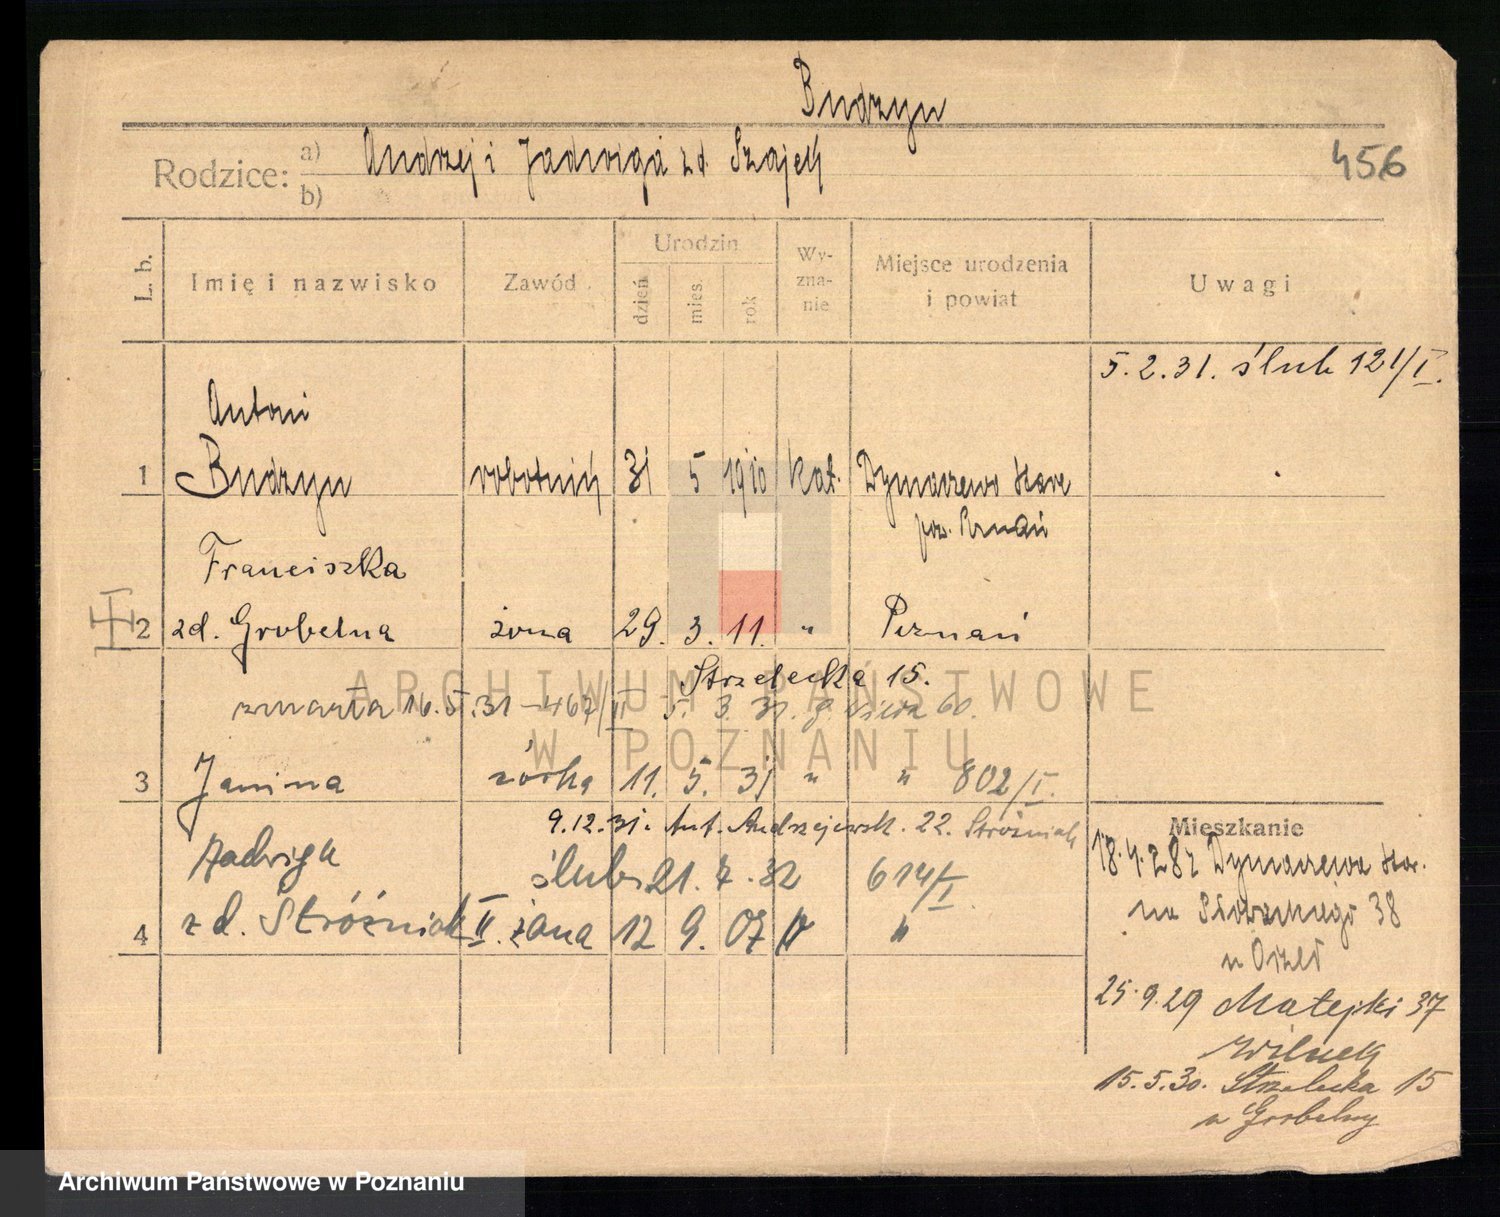 Budzyn
Rodzice: a) Andrzej i Jadwiga z d. Szajek
b)
456
L. b.
Imię i nazwisko
Zawód
Urodzin
dzień
mies.
rok
Wy-
zna-
nie
Miejsce urodzenia
i powiat
Uwagi
5.2.31. ślub 121/I.
Antoni
1 Budzyn robotnik 31 5 1910 kat. Dymaczewo Stare
pow. Poznań
Franciszka
2 zd. Grobelna żona 29. 3. 11. " Poznań
Strzelecka 15.
zmarła 16.5.31 – 467/II 5. 3. 31. 60.
3 Janina córka 11. 5. 31 " " 802/I.
9.12.31. Ant. Andrzejewsk. 22. Stróżniak
Jadwiga
ślub 21. 7. 32 614/I.
4 z d. Stróżniak II. żona 12 9. 07 " "
Mieszkanie
18.4.28 z Dymaczewa Star.
na 38
u
25.9.29 Matejki 37
15.5.30. Strzelecka 15
u Grobelny
ARCHIWUM PAŃSTWOWE
W POZNANIU
Archiwum Państwowe w Poznaniu